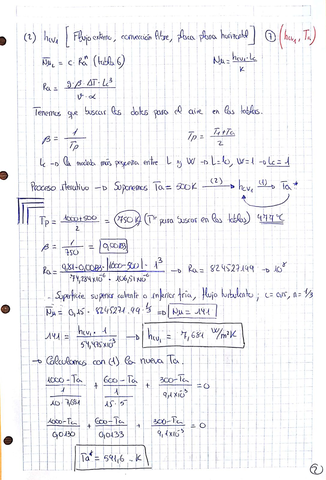 (2) hcv1 [Flujo externo, convección libre, placa plana horizontal] ① (hcv1, Ta)
Nu = c · Ra^n (tabla 6) Nu = hcv1 · Lc / K
Ra = g · β · ΔT · Lc³ / ν · α
Tenemos que buscar los datos para el aire en las tablas.
β = 1 / Tp Tp = T1 + Ta / 2
Lc → la medida más pequeña entre L y W → L = 10, W = 1 → Lc = 1
Proceso iterativo → Suponemos Ta = 500 K (2) → hcv1 (1) → Ta*
Tp = 1000 + 500 / 2 = 750 K (Tª para buscar en las tablas) 477 ºC
β = 1 / 750 = 0,00133
Ra = 9,81 · 0,00133 · |1000 - 500| · 1³ / → Ra = 824527199 → 10⁸
· Superficie superior caliente o inferior fría, flujo turbulento; c = 0,15, n = 1/3
Nu = 0,15 · 824527199^1/3 ⇒ Nu = 141
141 = hcv1 · 1 / → hcv1 = 7,681 W/m²K
→ Calculamos con (1) la nueva Ta.
1000 - Ta / 1 / 10 · 7,681 + 600 - Ta / 1 / 15 · 5 + 300 - Ta / 9,1×10⁻³ = 0
1000 - Ta / 0,0130 + 600 - Ta / 0,0133 + 300 - Ta / 9,1×10⁻³ = 0
Ta* = 591,6 K
②